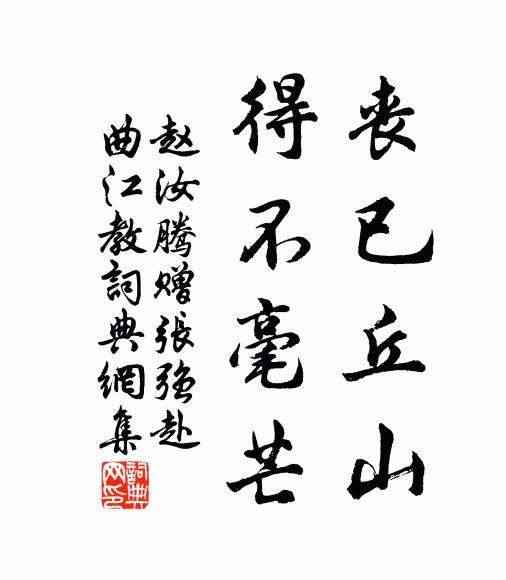 丧已丘山
得不毫芒
赵汝腾赠張强赴
曲江教詞典網集
詞典网印